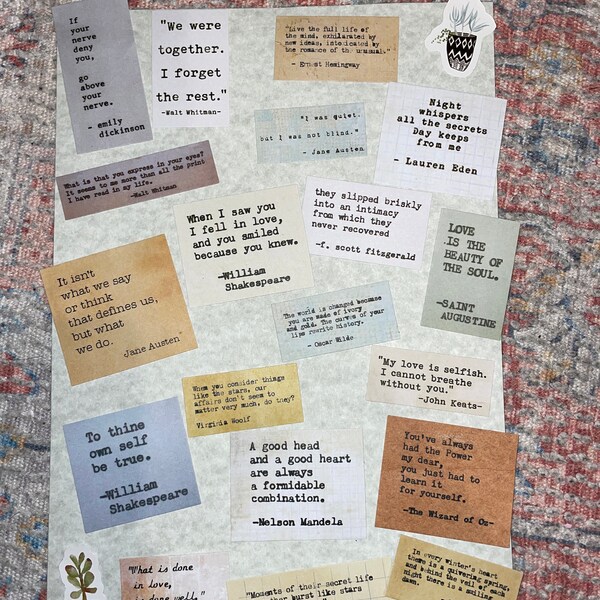 If
your
nerve
deny
you,
go
above
your
nerve.
- emily
dickinson
"We were
together.
I forget
the rest."
-Walt Whitman-
"Live the full life of
the mind, exhilarated by
new ideas, intoxicated by
the romance of the unusual."
- Ernest Hemingway
"I was quiet,
but I was not blind."
- Jane Austen
Night
whispers
all the secrets
Day keeps
from me
- Lauren Eden
What is that you express in your eyes?
It seems to me more than all the print
I have read in my life.
-Walt Whitman
When I saw you
I fell in love,
and you smiled
because you knew.
-William
Shakespeare
they slipped briskly
into an intimacy
from which they
never recovered
-f. scott fitzgerald
LOVE
IS THE
BEAUTY OF
THE SOUL.
-SAINT
AUGUSTINE
It isn't
what we say
or think
that defines us,
but what
we do.
Jane Austen
The world is changed because
you are made of ivory
and gold. The curves of your
lips rewrite history.
- Oscar Wilde
"My love is selfish.
I cannot breathe
without you."
-John Keats-
When you consider things
like the stars, our
affairs don't seem to
matter very much, do they?
Virginia Woolf
To thine
own self
be true.
-William
Shakespeare
A good head
and a good heart
are always
a formidable
combination.
-Nelson Mandela
You've always
had the Power
my dear,
you just had to
learn it
for yourself.
-The Wizard of Oz-
"What is done
in love,
is done well."
"Moments of their secret life
together burst like stars
In every winter's heart
there is a quivering spring,
and behind the veil of each
night there is a smiling
dawn.